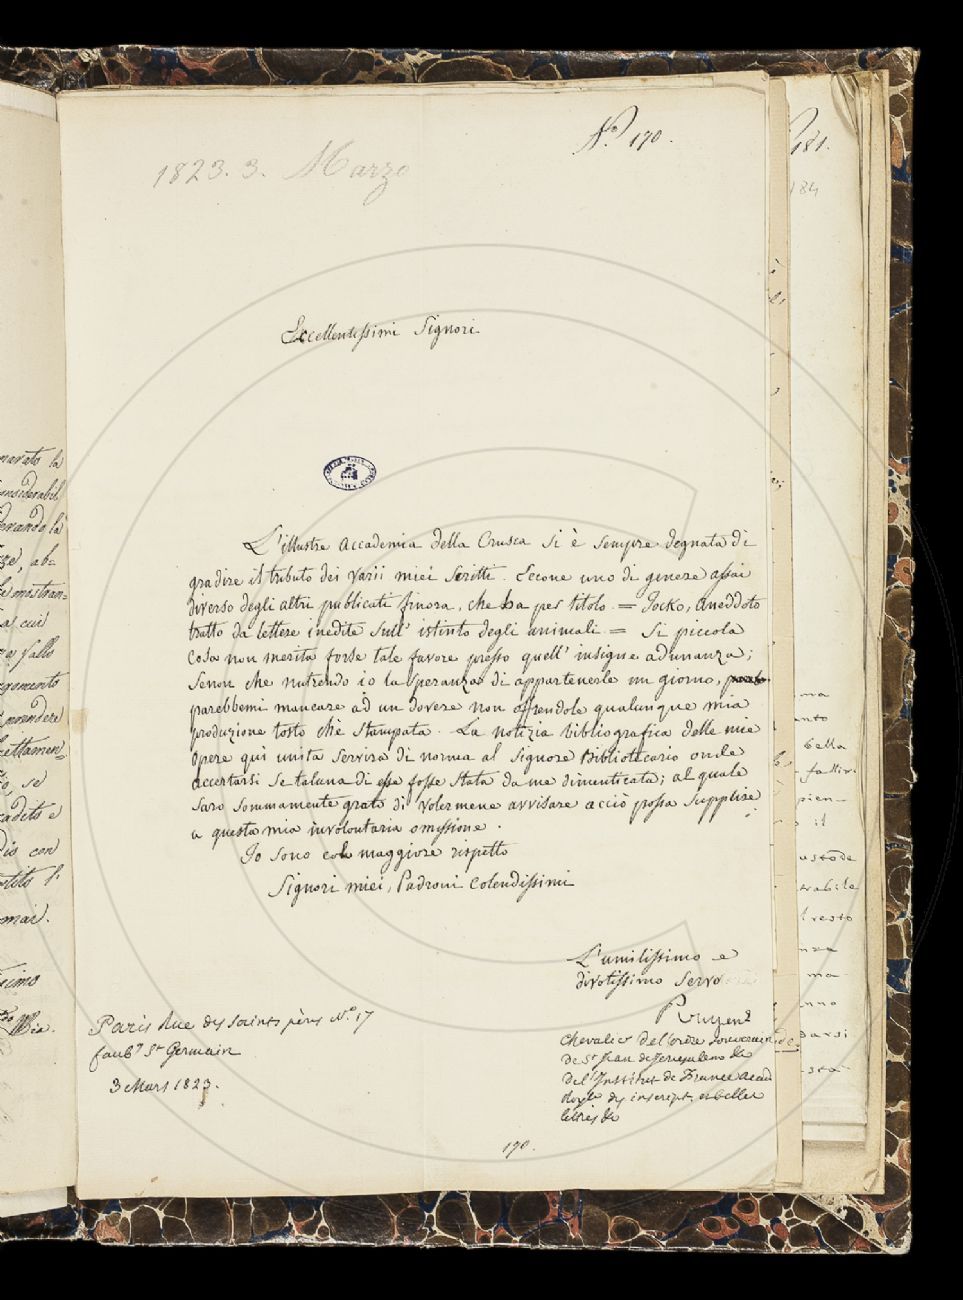 N.º 170.
1823. 3. Marzo
Eccellentissimi Signori
L'illustre Accademia della Crusca si è sempre degnata di
gradire il tributo dei varii miei Scritti. Eccone uno di genere assai
diverso degli altri publicati finora, che ha per titolo. = Jocko, Aneddoto
tratto da lettere inedite sull' istinto degli animali. = Si piccola
cosa non merita forse tale favore presso quell' insigne adunanza;
Senon che nutrendo io la speranza di appartenerle un giorno,
parebbemi mancare ad un dovere non offrendole qualunque mia
produzione tosto chè stampata. La notizia bibliografica delle mie
opere qui unita servira di norma al Signore Bibliotecario onde
accertarsi se taluna di esse fosse stata da me dimenticata; al quale
saro sommamente grato di volermene avvisare acciò possa supplire
a questa mia involontaria omessione.
Io sono col maggiore rispetto
Signori miei, Padroni Colendissimi
L'umilissimo e
divotissimo servo
Pougens
Chevalier de l'ordre souverain
de St Jean de Jerusalem &c
de l'Institut de France acad
des inscript. et belles
lettres &c
Paris Rue des Saints pères N.º 17
faubg St Germain
3 Mars 1823.
190.
181.
184